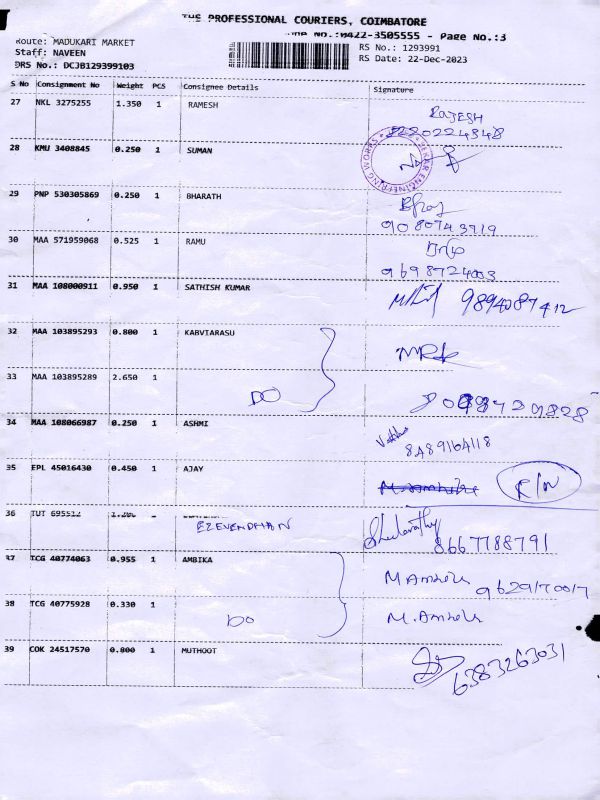 THE PROFESSIONAL COURIERS, COIMBATORE
NO.:0422-3505555 - Page No.:3
Route: MADUKARI MARKET
Staff: NAVEEN
DRS No.: DCJB129399103
RS No.: 1293991
RS Date: 22-Dec-2023
S No Consignment No Weight PCS Consignee Details Signature
27 NKL 3275255 1.350 1 RAMESH RAJESH
28 KMU 3408845 0.250 1 SUMAN
29 PNP 530305869 0.250 1 BHARATH
9080743719
30 MAA 571959068 0.525 1 RAMU
9698724003
31 MAA 108000911 0.950 1 SATHISH KUMAR 9894087412
32 MAA 103895293 0.800 1 KABVIARASU
33 MAA 103895289 2.650 1
DO
34 MAA 108066987 0.250 1 ASHMI
35 EPL 45016430 0.450 1 AJAY
36 TUT 695512 1
EZEVENDHAN
8667788791
37 TCG 40774063 0.955 1 AMBIKA M Ambika
38 TCG 40775928 0.330 1 DO M. Ambika
39 COK 24517570 0.800 1 MUTHOOT 6383263031